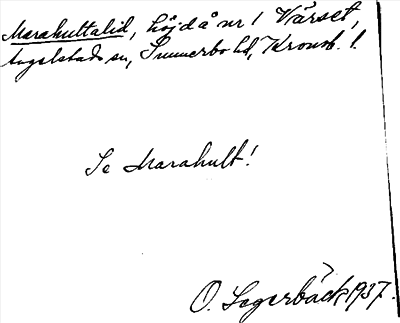 Marahultalid, höjd å nr 1 Värset,
Angelstads sn, Sunnerbo hd, Kronob. l.
Se Marahult!
O. Lagerbäck 1937.